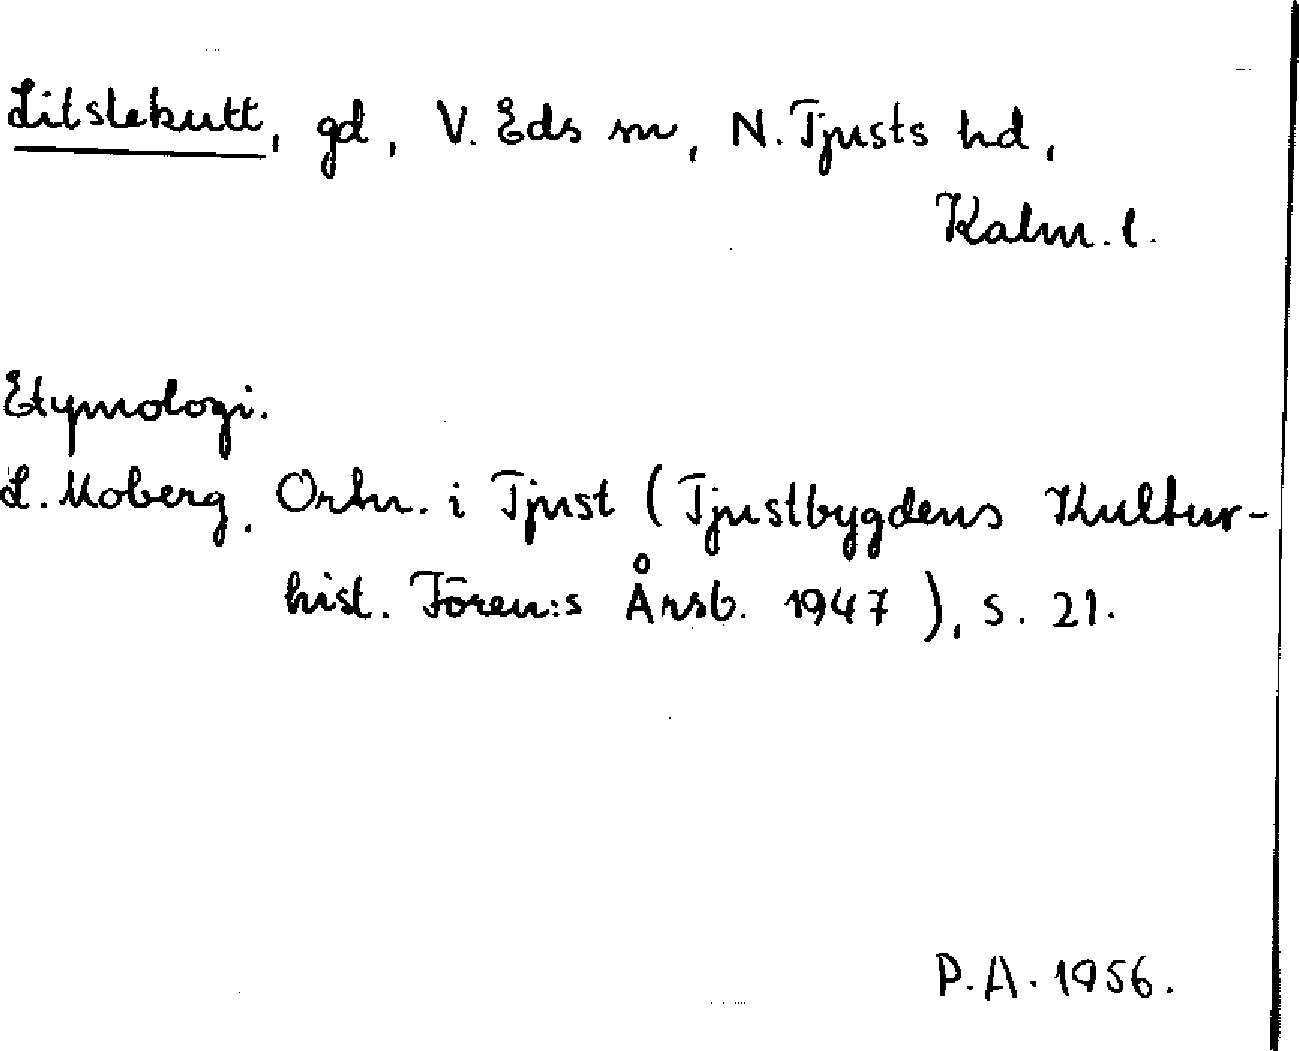 Litslekutt, gd, V. Eds sn, N. Tjusts hd,
Kalm. l.
Etymologi.
L. Moberg, Ortn. i Tjust (Tjustbygdens Kultur-
hist. Fören:s Årsb. 1947), s. 21.
P.A. 1956.